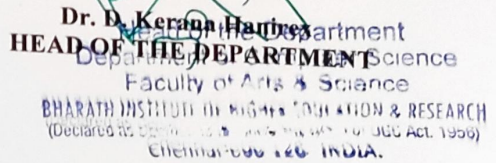 Dr. D. Kerana Hanirex
Head of the Department
HEAD OF THE DEPARTMENT
Department of Science
Faculty of Arts & Science
BHARATH INSTITUTE OF HIGHER EDUCATION & RESEARCH
(Declared as UGC Act. 1956)
Chennai-600 126 INDIA.